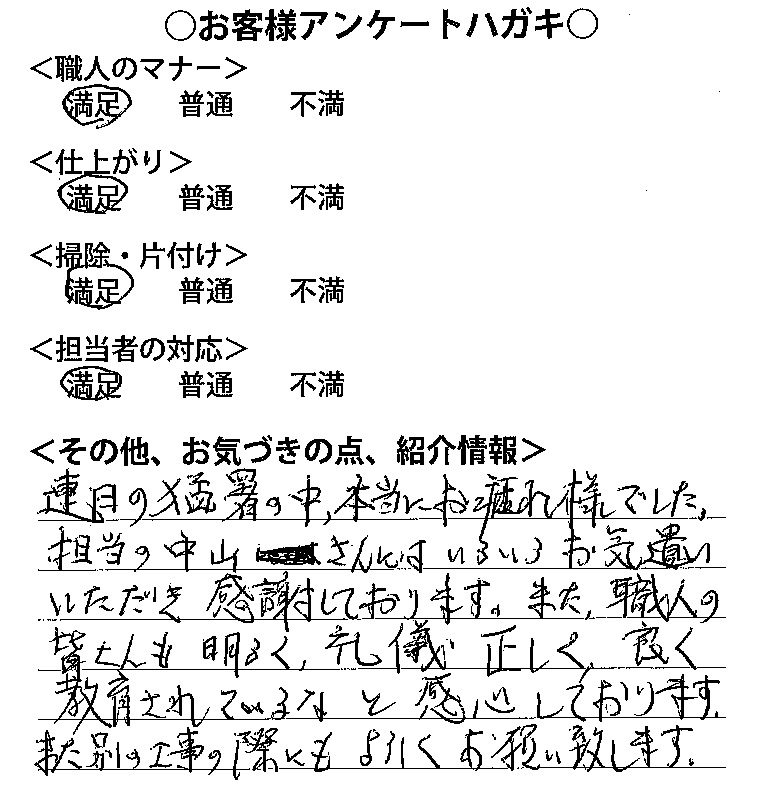 ○お客様アンケートハガキ○
＜職人のマナー＞
満足 普通 不満
＜仕上がり＞
満足 普通 不満
＜掃除・片付け＞
満足 普通 不満
＜担当者の対応＞
満足 普通 不満
＜その他、お気づきの点、紹介情報＞
連日の猛暑の中、本当にお疲れ様でした。
担当の中山 さんにはいろいろお気遣い
いただき感謝しております。また、職人の
皆さんも明るく、礼儀正しく、良く
教育されているなと感心しております。
また別の工事の際にもよろしくお願い致します。